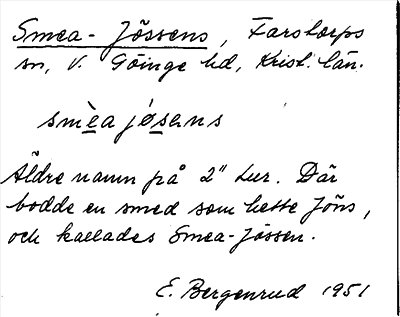 Smea-Jössens, Farstorps
sn, V. Göinge hd, Krist. län.
smèa jósens
Äldre namn på 2" Lur. Där
bodde en smed som hette Jöns,
och kallades Smea-Jössen.
E. Bergenrud 1951